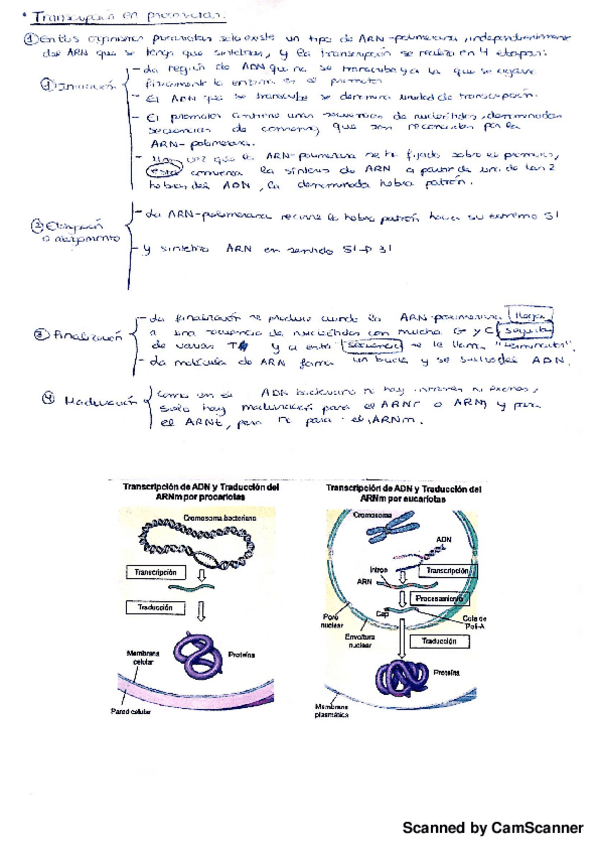 * Transcripción en procariotas.
① En los organismos procariotas solo existe un tipo de ARN-polimerasa, independientemente
del ARN que se tenga que sintetizar, y la transcripción se realiza en 4 etapas:
① Iniciación
- La región de ADN que no se transcribe y a la que se
el promotor
- El ADN que se transcribe se denomina unidad de transcripción.
- El promotor contiene unas secuencias de nucleótidos, denominadas
secuencias de consenso, que son reconocidas por la
ARN-polimerasa.
- Una vez que la ARN-polimerasa se ha fijado sobre el promotor,
ésta comienza la síntesis de ARN a partir de una de las 2
hebras del ADN, la denominada hebra patrón.
② Elongación
o alargamiento
- La ARN-polimerasa recorre la hebra patrón hacia su extremo 5'
- y sintetiza ARN en sentido 5'→ 3'
③ Finalización
- La finalización se produce cuando la ARN-polimerasa llega
a una secuencia de nucleótidos con mucha G y C seguida
de varias T y a esta secuencia se le llama "terminator".
- La molécula de ARN forma un bucle y se del ADN.
④ Maduración
Como en el ADN bacteriano no hay intrones ni exones,
solo hay maduración para el ARNr o y para
el ARNt, pero no para el ARNm.
Transcripción de ADN y Traducción del
ARNm por procariotas
Cromosoma bacteriano
Transcripción
Traducción
Membrana
celular
Proteína
Pared celular
Transcripción de ADN y Traducción del
ARNm por eucariotas
Cromosoma
ADN
Intron
Transcripción
ARN
Procesamiento
Cap
Cola de
Poli-A
Poro
nuclear
Envoltura
nuclear
Traducción
Proteína
Membrana
plasmática
Scanned by CamScanner